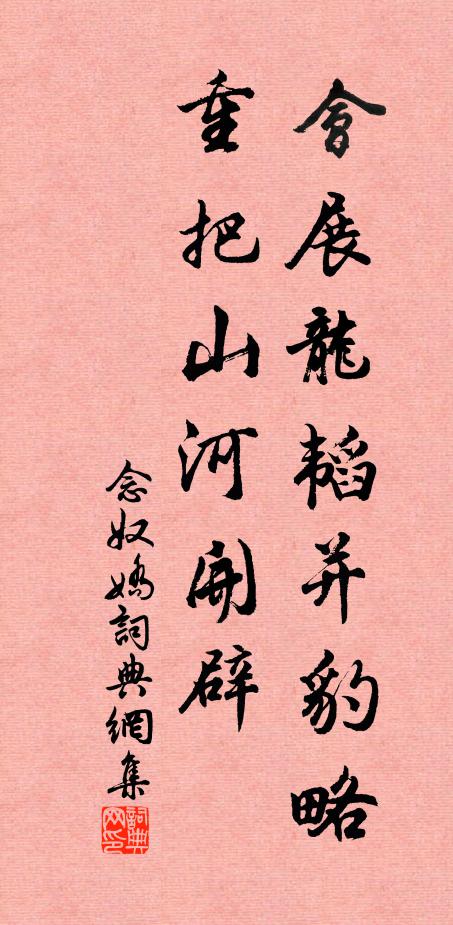 會展龍韜并豹略
重把山河開辟
念奴嬌詞典網集
詞典
网印